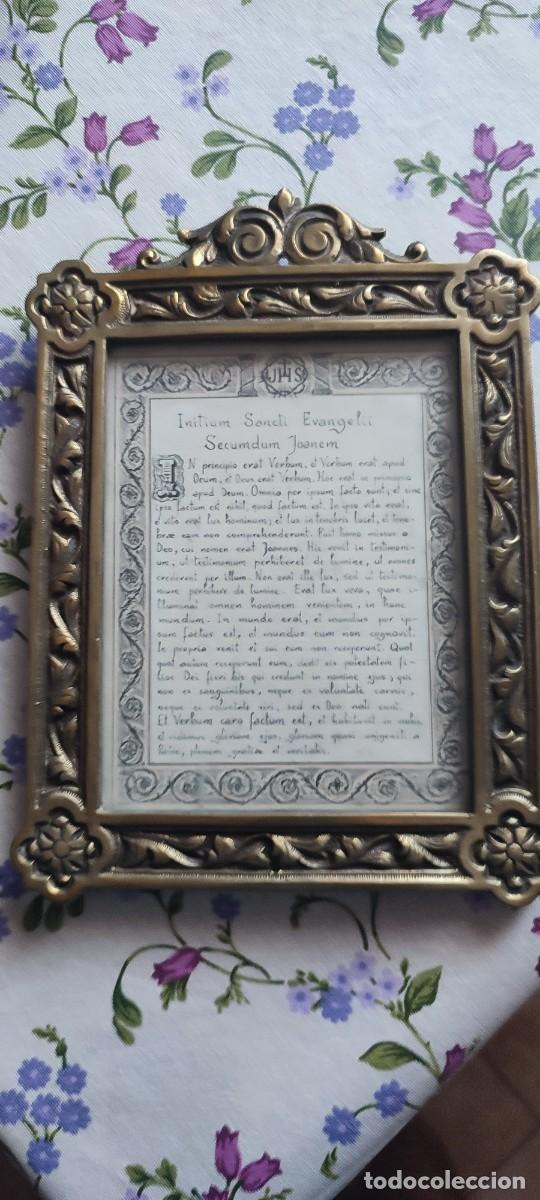 JHS
Initium Sancti Evangelii
Secumdum Joanem
IN principio erat Verbum, et Verbum erat apud
Deum, et Deus erat Verbum. Hoc erat in principio
apud Deum. Omnia per ipsum facta sunt; et sine
ipso factum est nihil, quod factum est. In ipso vita erat,
et vita erat lux hominum; et lux in tenebris lucet, et tene-
bræ eam non comprehenderunt. Fuit homo missus a
Deo, cui nomen erat Joannes. Hic venit in testimoni-
um, ut testimonium perhiberet de lumine, ut omnes
crederent per illum. Non erat ille lux, sed ut testimo-
nium perhiberet de lumine. Erat lux vera, quae i-
lluminat omnem hominem venientem, in hunc
mundum. In mundo erat, et mundus per ip-
sum factus est, et mundus eum non cognovit.
In propria venit et sui eum non receperunt. Quot
quot autem receperunt eum, dedit eis potestatem fi-
lios Dei fieri his qui credunt in nomine ejus; qui
non ex sanguinibus, neque ex voluntate carnis,
neque ex voluntate viri, sed ex Deo nati sunt.
Et Verbum caro factum est, et habitavit in nobis,
et vidimus gloriam ejus, gloriam quasi unigeniti a
Patre, plenum gratiæ et veritatis.
todocoleccion
todocoleccion.net